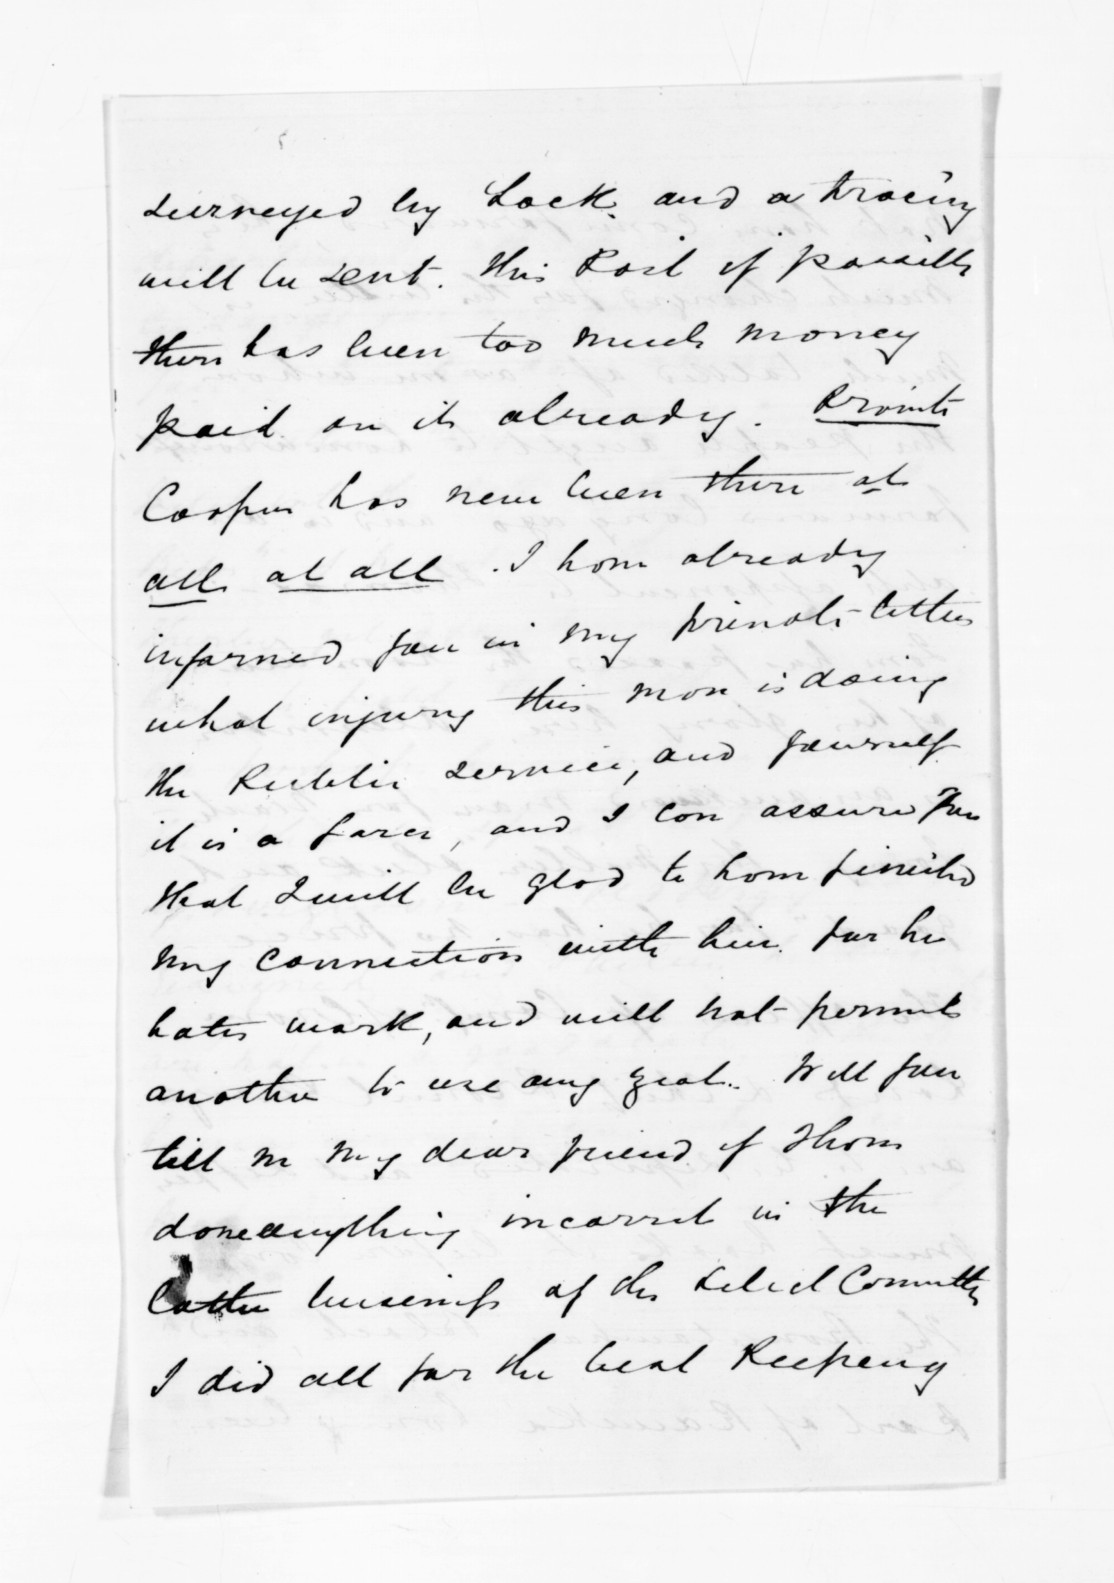 surveyed by Lock. and a tracing
will be sent. this Post if possible
there has been too much money
paid on it already. Private
Cooper has never been there at
all at all. I have already
informed you in my private letters
what injury this man is doing
the Public service, and yourself
it is a farce, and I can assure you
that I will be glad to have finished
my connection with him. for he
hates work, and will not permit
another to use any zeal. Will you
tell me my dear friend if I have
done anything incorrect in the
Cattle business of the Select Committee
I did all for the best Keeping